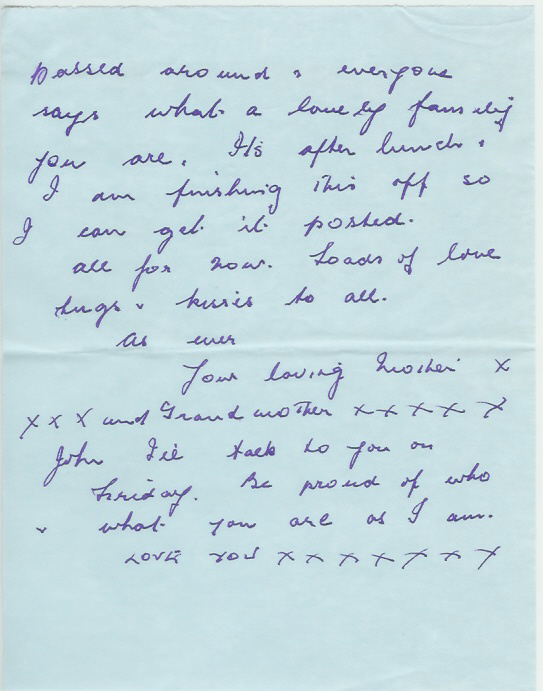 passed around & everyone
says what a lovely family
you are. It's after lunch &
I am finishing this off so
I can get it posted.
all for now. Loads of love
hugs & kisses to all.
As ever
Your loving Mother x
x x x and Grandmother x x x x x
John I'll talk to you on
Friday. Be proud of who
& what you are as I am.
LOVE YOU x x x x x x x